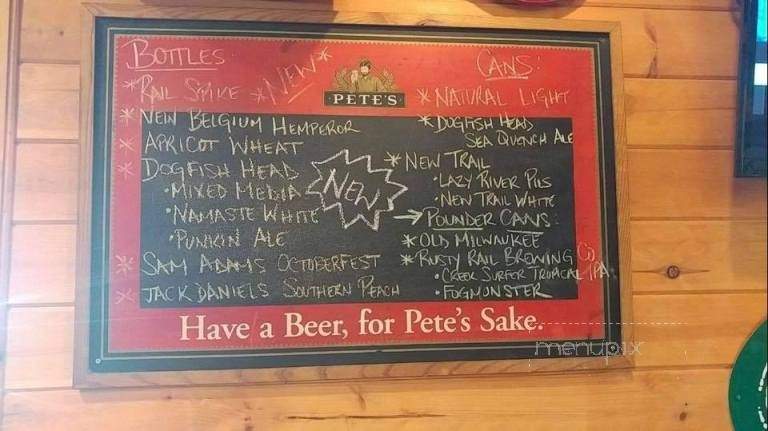 BOTTLES
*RAIL SPIKE *NEW*
* NEW BELGIUM HEMPEROR
* APRICOT WHEAT
* DOGFISH HEAD
•MIXED MEDIA
•NAMASTE WHITE
•PUNKIN ALE
* SAM ADAMS OCTOBERFEST
* JACK DANIELS SOUTHERN PEACH
NEW
PETE'S
CANS:
*NATURAL LIGHT
*DOGFISH HEAD
SEA QUENCH ALE
*NEW TRAIL
•LAZY RIVER PILS
•NEW TRAIL WHITE
→POUNDER CANS:
*OLD MILWAUKEE
*RUSTY RAIL BREWING CO
•CREEK SURFER TROPICAL IPA
•FOGMONSTER
Have a Beer, for Pete's Sake.
menupix